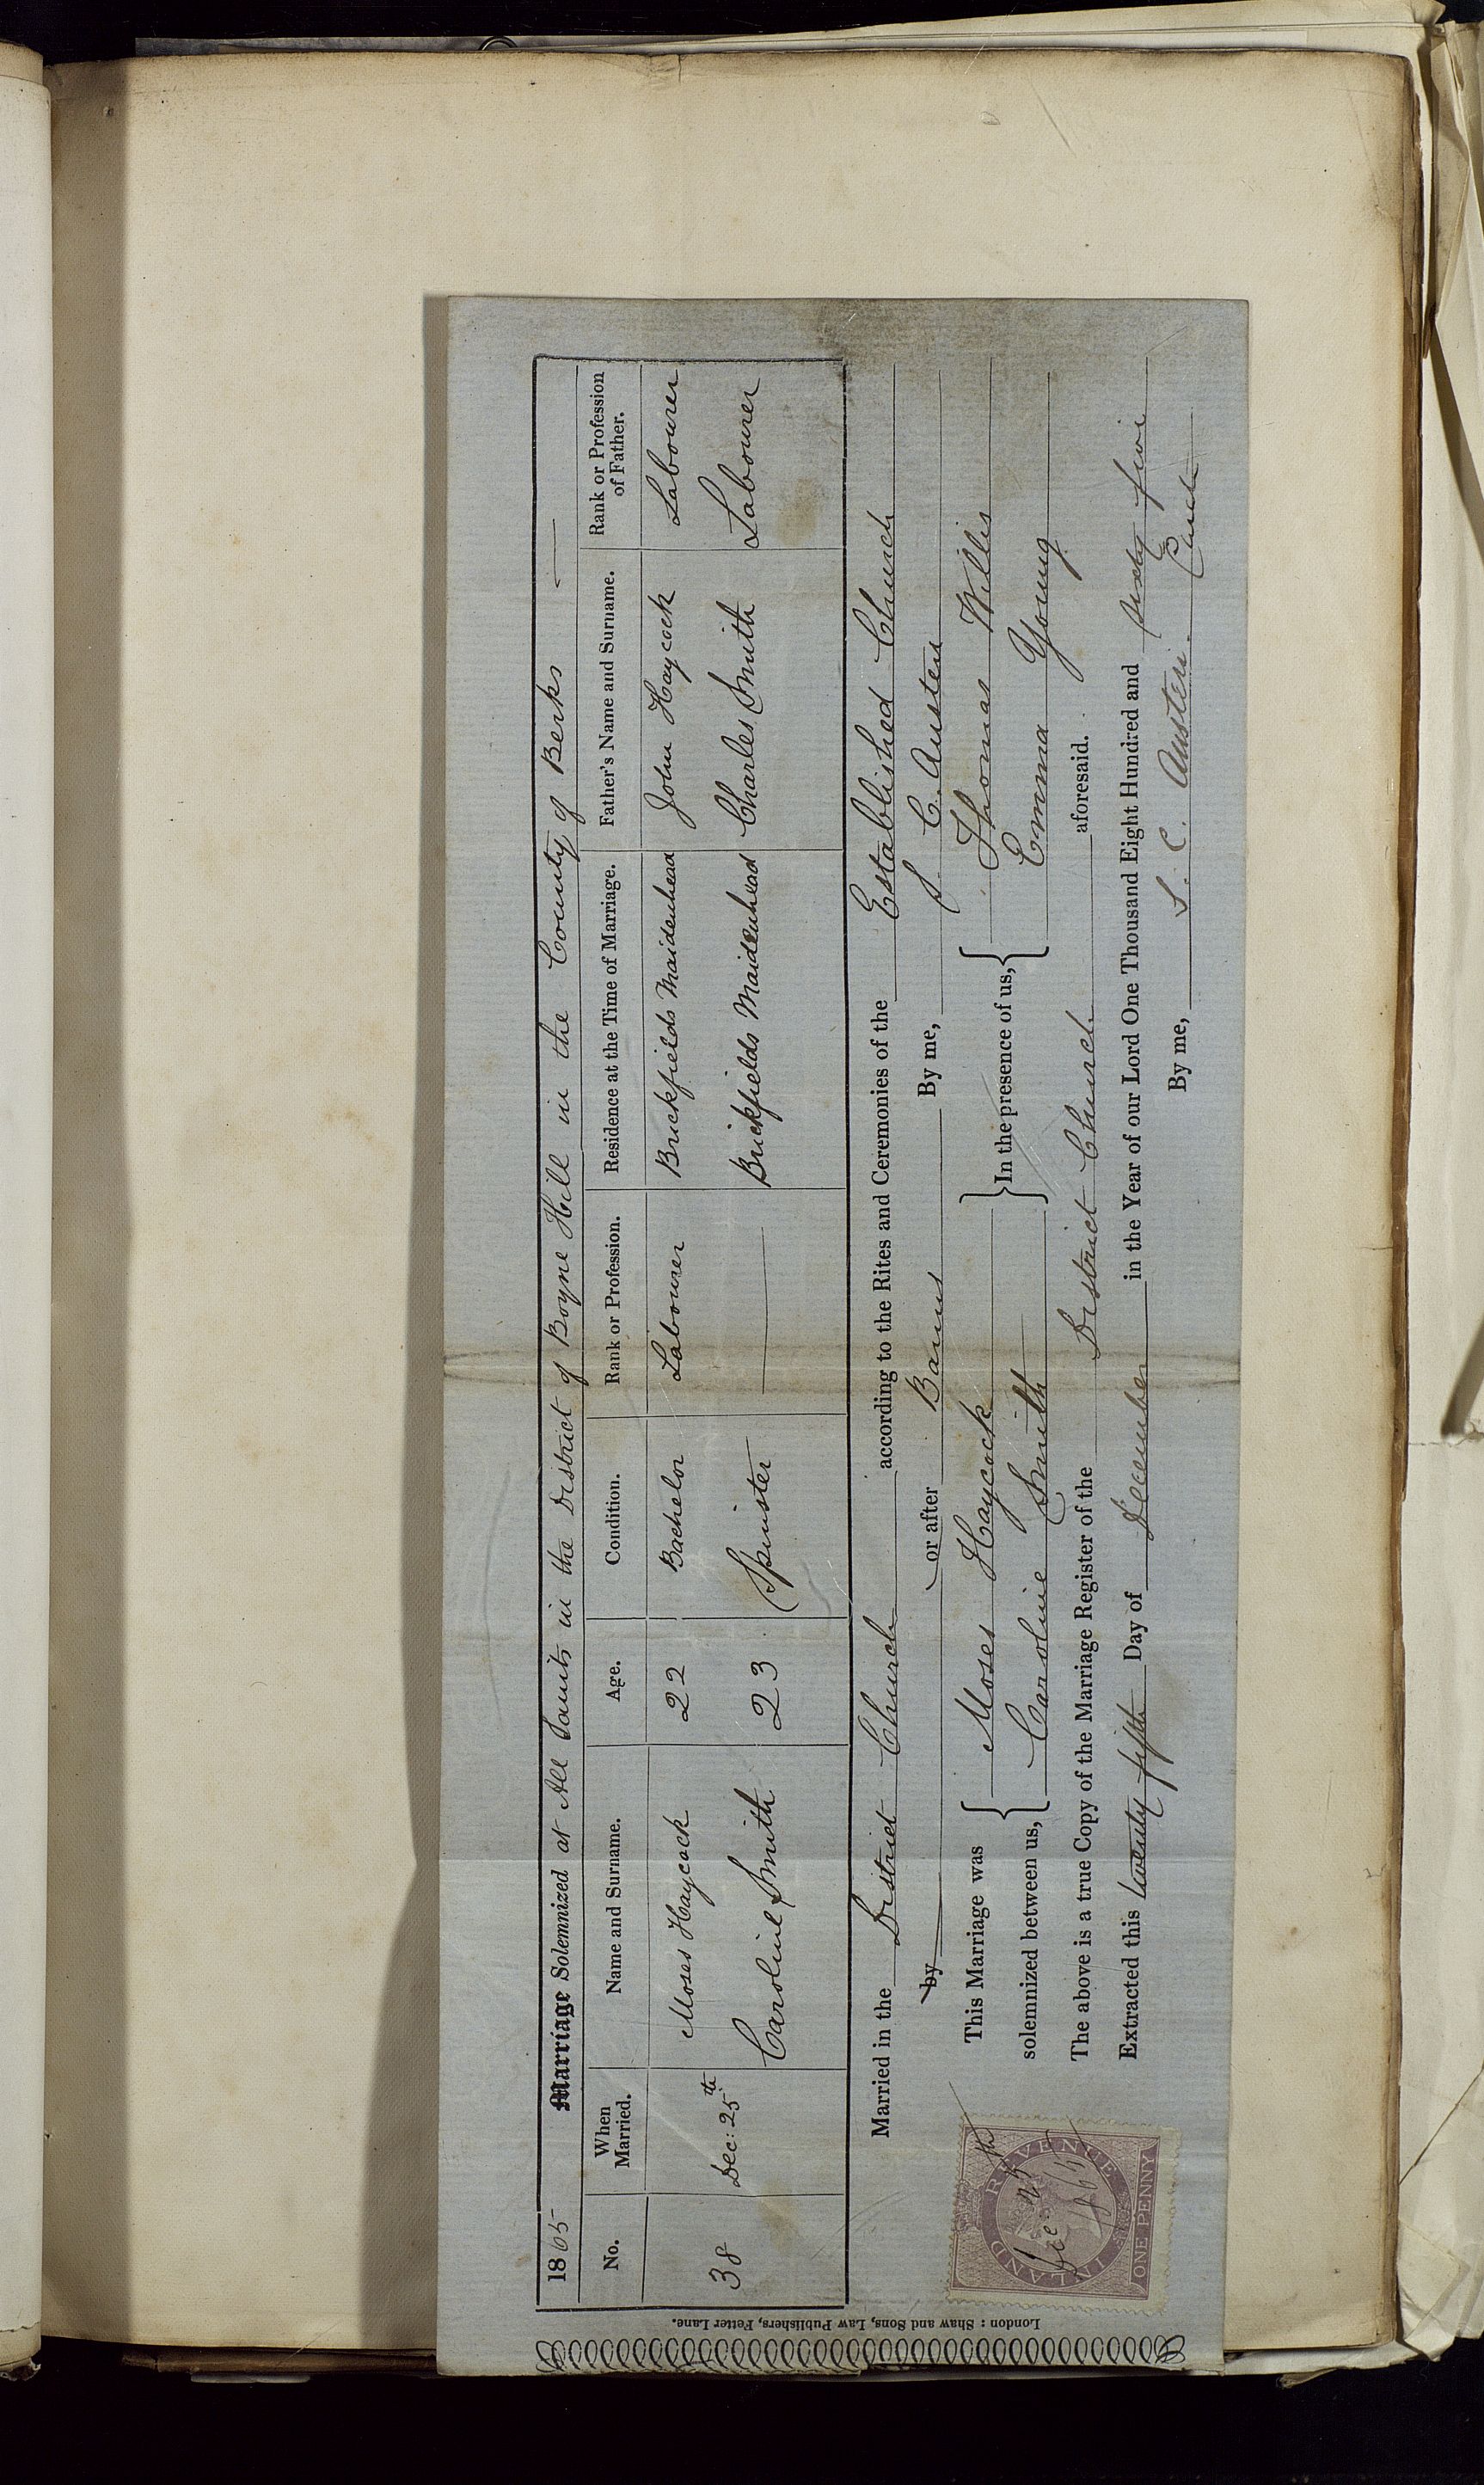 1865 Marriage Solemnized at All Saints in the District of Boyne Hill in the County of Berks
No. When Married. Name and Surname. Age. Condition. Rank or Profession. Residence at the Time of Marriage. Father's Name and Surname. Rank or Profession of Father.
38 Dec: 25th Moses Haycock 22 Bachelor Labourer Brickfields Maidenhead John Haycock Labourer
Caroline Smith 23 Spinster Brickfields Maidenhead Charles Smith Labourer
Married in the District Church according to the Rites and Ceremonies of the Established Church
by or after Banns By me, S. C. Austen
This Marriage was Moses Haycock In the presence of us, Thomas Willis
solemnized between us, Caroline Smith Emma Young
The above is a true Copy of the Marriage Register of the District Church aforesaid.
Extracted this twenty fifth Day of December in the Year of our Lord One Thousand Eight Hundred and sixty five
By me, S. C. Austen.
INLAND REVENUE
ONE PENNY
Dec 25th
1865
London: Shaw and Sons, Law Publishers, Fetter Lane.